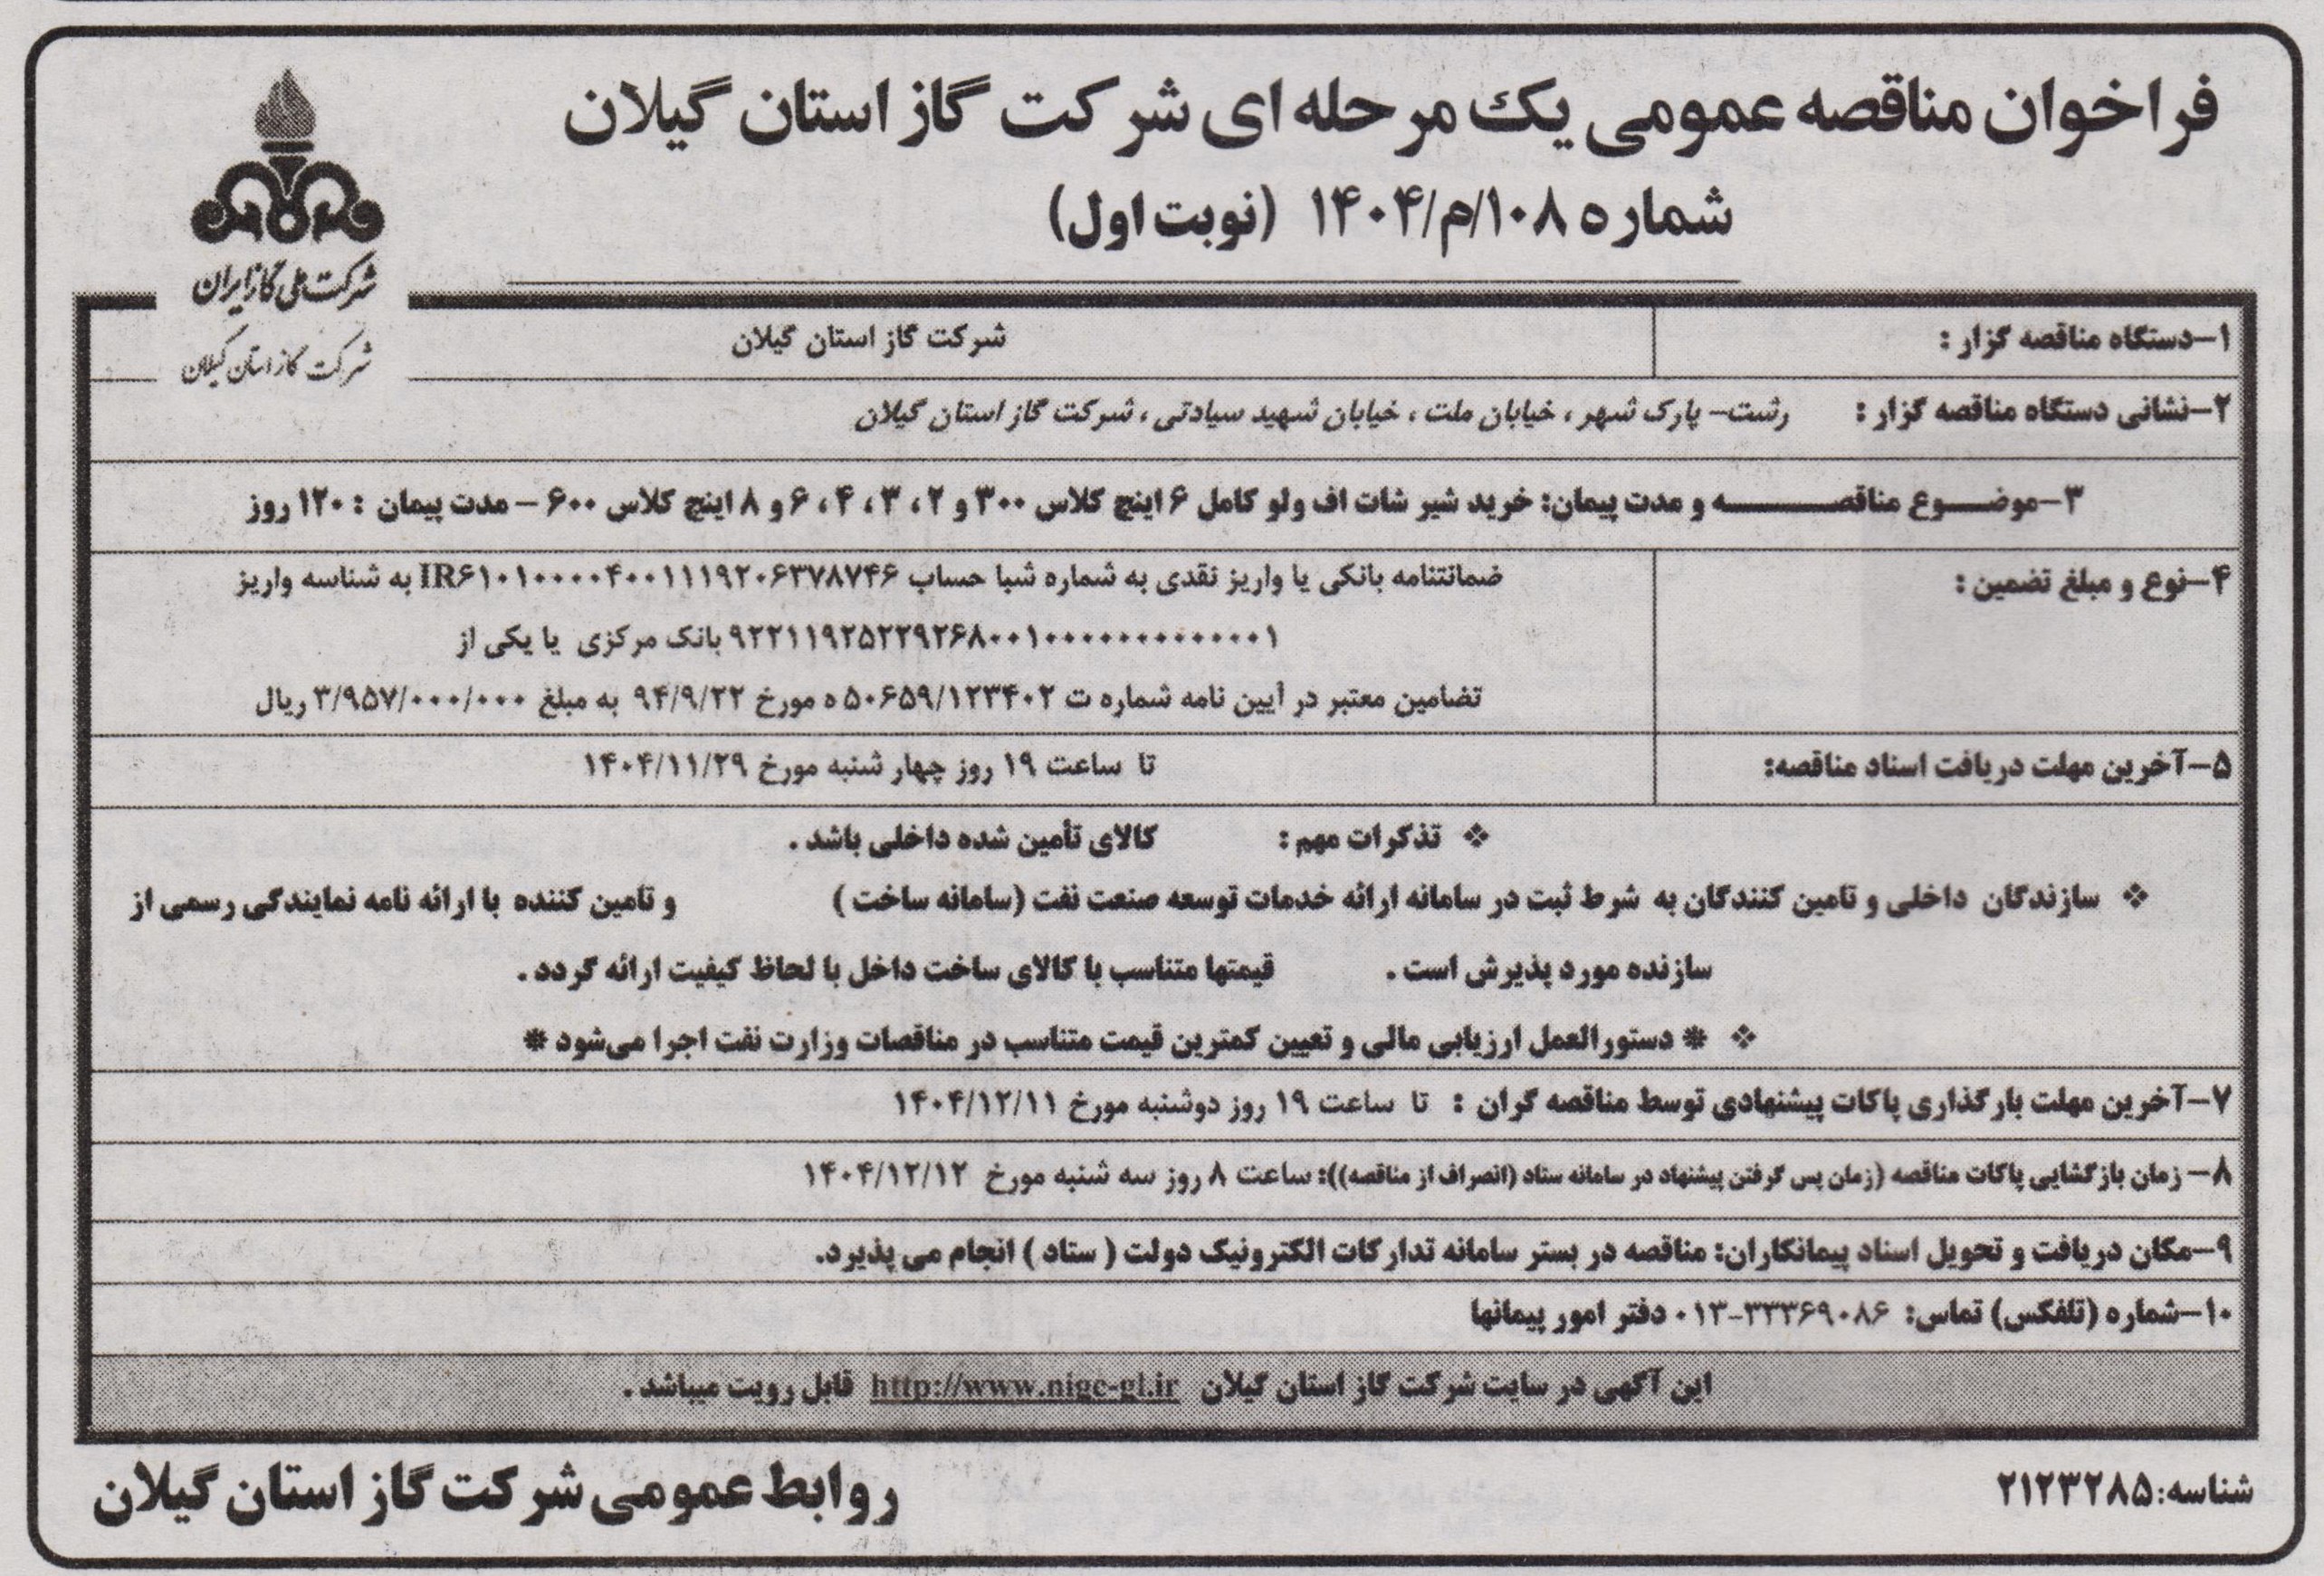 فراخوان مناقصه عمومی یک مرحله ای شرکت گاز استان گیلان
شماره ۱۰۸/م/۱۴۰۴ (نوبت اول)
شرکت ملی گاز ایران
شرکت گاز استان گیلان
۱-دستگاه مناقصه گزار : شرکت گاز استان گیلان
۲-نشانی دستگاه مناقصه گزار : رشت- پارک شهر ، خیابان ملت ، خیابان شهید سیادتی ، شرکت گاز استان گیلان
۳-موضوع مناقصه و مدت پیمان: خرید شیر شات اف ولو کامل ۶ اینچ کلاس ۳۰۰ و ۲ ، ۳ ، ۴ ، ۶ و ۸ اینچ کلاس ۶۰۰ - مدت پیمان : ۱۲۰ روز
۴-نوع و مبلغ تضمین : ضمانتنامه بانکی یا واریز نقدی به شماره شبا حساب IR۶۱۰۱۰۰۰۰۴۰۰۱۱۱۹۲۰۶۳۷۸۷۴۶ به شناسه واریز
۹۲۲۱۱۹۲۵۲۲۹۲۶۸۰۰۱۰۰۰۰۰۰۰۰۰۰۰۰۰۱ بانک مرکزی یا یکی از
تضامین معتبر در آیین نامه شماره ت ۵۰۶۵۹/۱۲۳۴۰۲ ه مورخ ۹۴/۹/۲۲ به مبلغ ۳/۹۵۷/۰۰۰/۰۰۰ ریال
۵-آخرین مهلت دریافت اسناد مناقصه: تا ساعت ۱۹ روز چهار شنبه مورخ ۱۴۰۴/۱۱/۲۹
❖ تذکرات مهم : کالای تأمین شده داخلی باشد .
❖ سازندگان داخلی و تامین کنندگان به شرط ثبت در سامانه ارائه خدمات توسعه صنعت نفت (سامانه ساخت ) و تامین کننده با ارائه نامه نمایندگی رسمی از
سازنده مورد پذیرش است . قیمتها متناسب با کالای ساخت داخل با لحاظ کیفیت ارائه گردد .
❖ * دستورالعمل ارزیابی مالی و تعیین کمترین قیمت متناسب در مناقصات وزارت نفت اجرا می‌شود *
۷-آخرین مهلت بارگذاری پاکات پیشنهادی توسط مناقصه گران : تا ساعت ۱۹ روز دوشنبه مورخ ۱۴۰۴/۱۲/۱۱
۸- زمان بازگشایی پاکات مناقصه (زمان پس گرفتن پیشنهاد در سامانه ستاد (انصراف از مناقصه)): ساعت ۸ روز سه شنبه مورخ ۱۴۰۴/۱۲/۱۲
۹-مکان دریافت و تحویل اسناد پیمانکاران: مناقصه در بستر سامانه تدارکات الکترونیک دولت ( ستاد ) انجام می پذیرد.
۱۰-شماره (تلفکس) تماس: ۳۳۳۶۹۰۸۶-۰۱۳ دفتر امور پیمانها
این آگهی در سایت شرکت گاز استان گیلان http://www.nigc-gl.ir قابل رویت میباشد .
شناسه:۲۱۲۳۲۸۵
روابط عمومی شرکت گاز استان گیلان